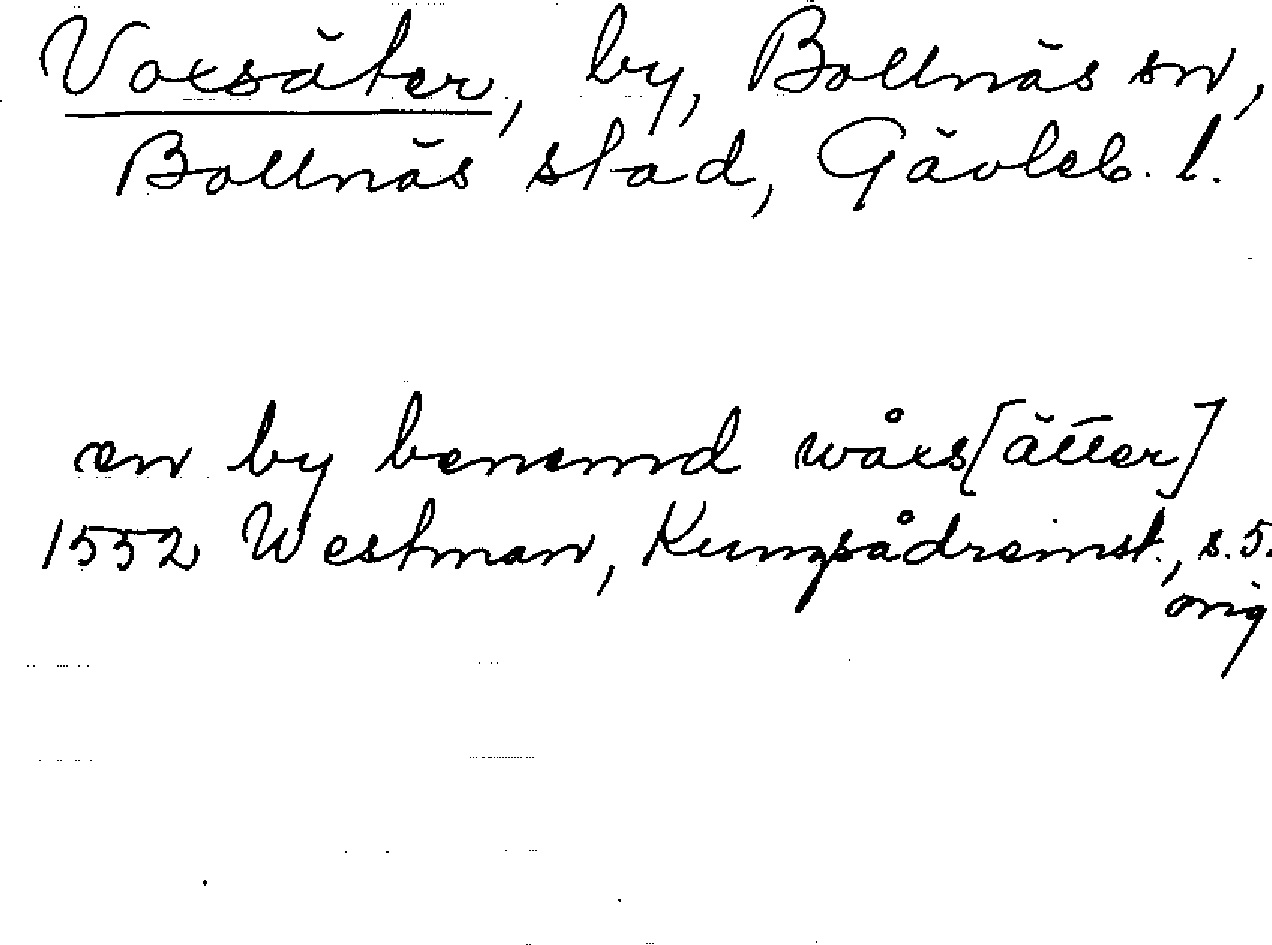 Voxsäter, by, Bollnäs sn,
Bollnäs stad, Gävleb. l.
en by benemnd wåxs[ätter]
1552 Westman, Kungsådremst., s. 5.
orig